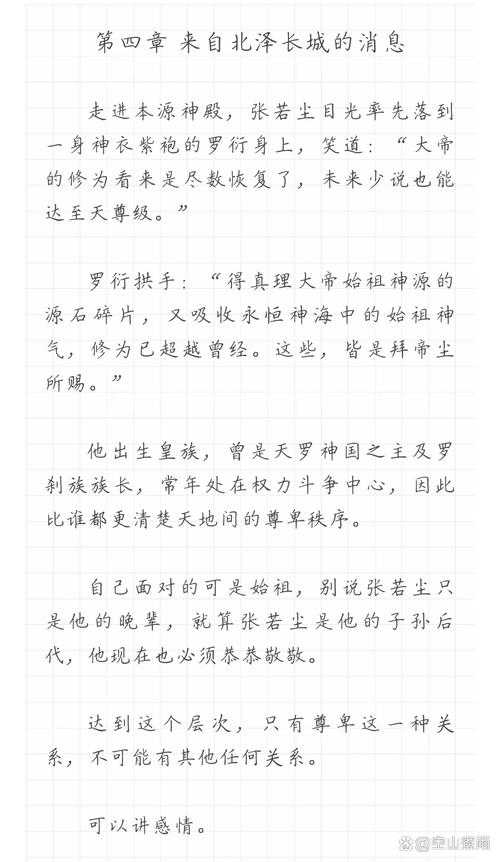 第四章 来自北泽长城的消息
走进本源神殿，张若尘目光率先落到
一身神衣紫袍的罗衍身上，笑道：“大帝
的修为看来是尽数恢复了，未来少说也能
达至天尊级。”
罗衍拱手：“得真理大帝始祖神源的
源石碎片，又吸收永恒神海中的始祖神
气，修为已超越曾经。这些，皆是拜帝尘
所赐。”
他出生皇族，曾是天罗神国之主及罗
刹族族长，常年处在权力斗争中心，因此
比谁都更清楚天地间的尊卑秩序。
自己面对的可是始祖，别说张若尘只
是他的晚辈，就算张若尘是他的子孙后
代，他现在也必须恭恭敬敬。
达到这个层次，只有尊卑这一种关
系，不可能有其他任何关系。
可以讲感情。